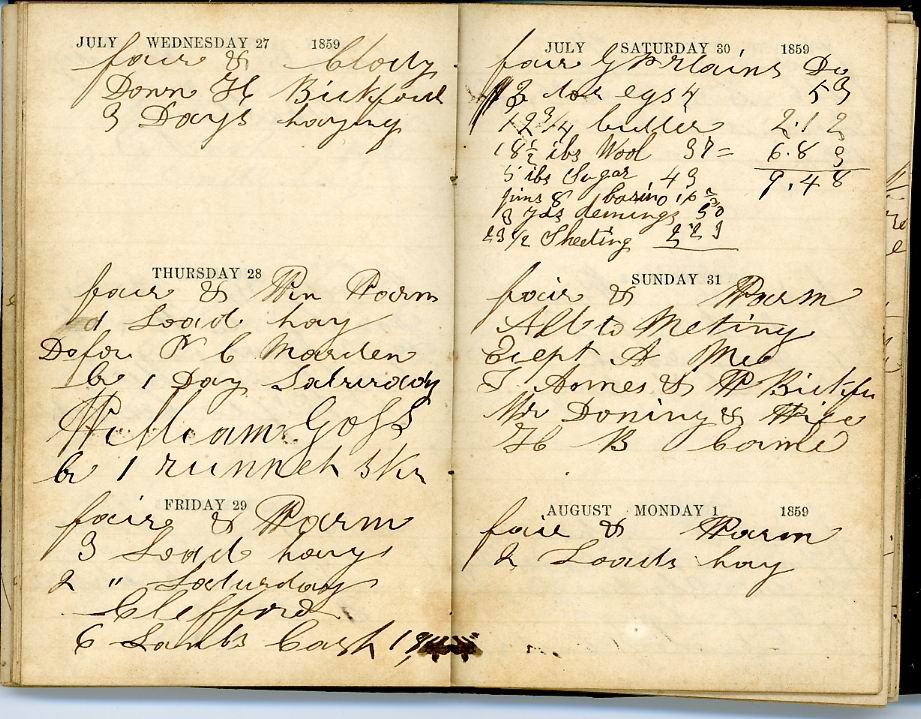 JULY WEDNESDAY 27 1859
fair & Clody
Donn H Bickford
3 Days haying
THURSDAY 28
fair & Warm
1 Load hay
Do for P C Marden
br 1 Day Saturday
William Goss
br 1 runnet skn
FRIDAY 29
fair & Warm
3 Load hay
2 " Saturday
Clefford
6 Lambs Cash
JULY SATURDAY 30 1859
fair G P Rlains Do
doz egs 53
12 3/4 butter 2.12
18 1/2 lbs Wool 37= 6.83
5 lbs Sugar 43 9.48
jims 8 basin
3 yds demings 50
23 1/2 Sheeting 223
SUNDAY 31
fair & Warm
All to Meting
Exept A Me
& W Bickfu
Mr Doning & Wife
H B Came
AUGUST MONDAY 1 1859
fair & Warm
2 Loads hay